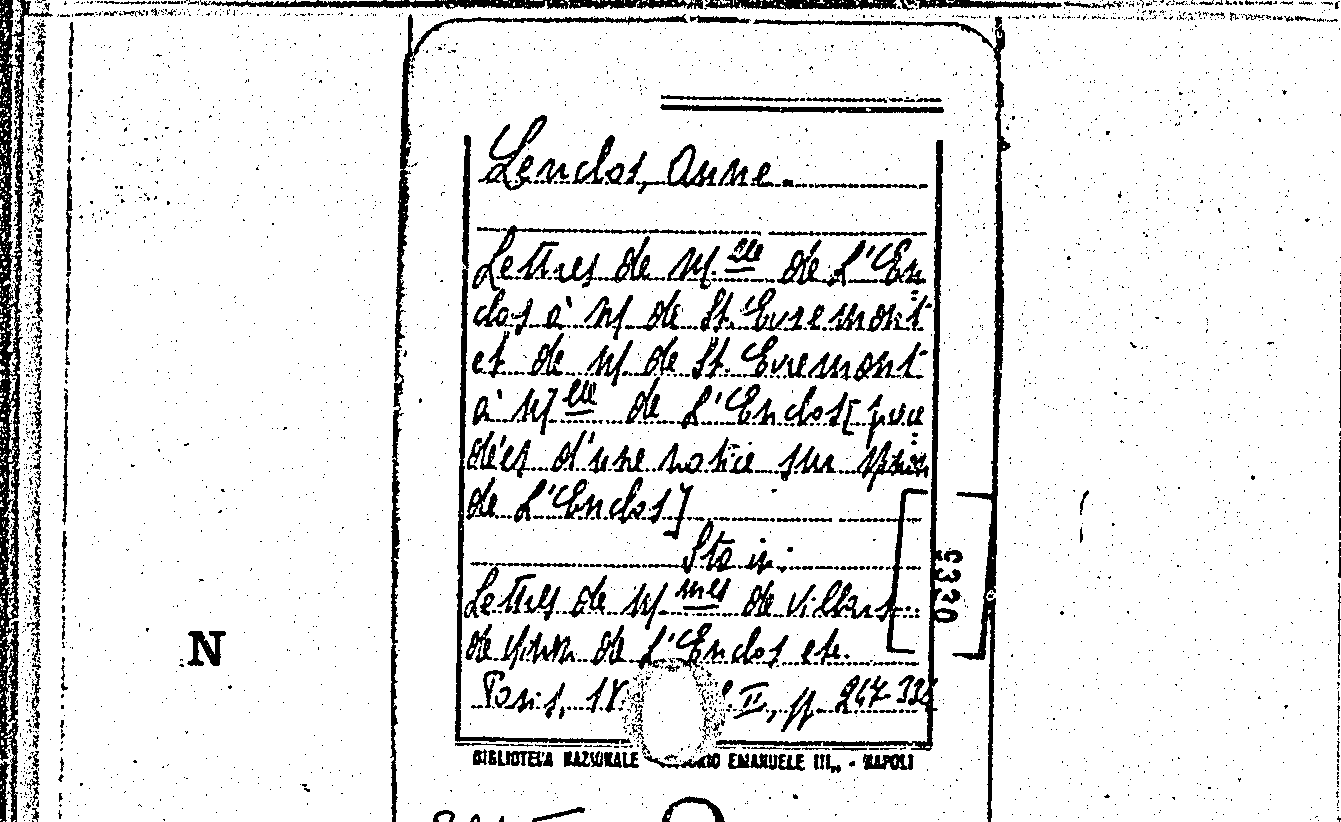 Lenclos, Anne.
Lettres de M.lle de L'En
clos à M de St. Evremont
et de M de St. Evremont
à Mlle de L'Enclos [prece
dées d'une notice sur Ninon
de L'Enclos]
Sta in:
Lettres de M.mes de Villars...
de Ninon de L'Enclos etc.
Paris, 18 II, pp. 247-
BIBLIOTECA NAZIONALE EMANUELE III,, - NAPOLI
N